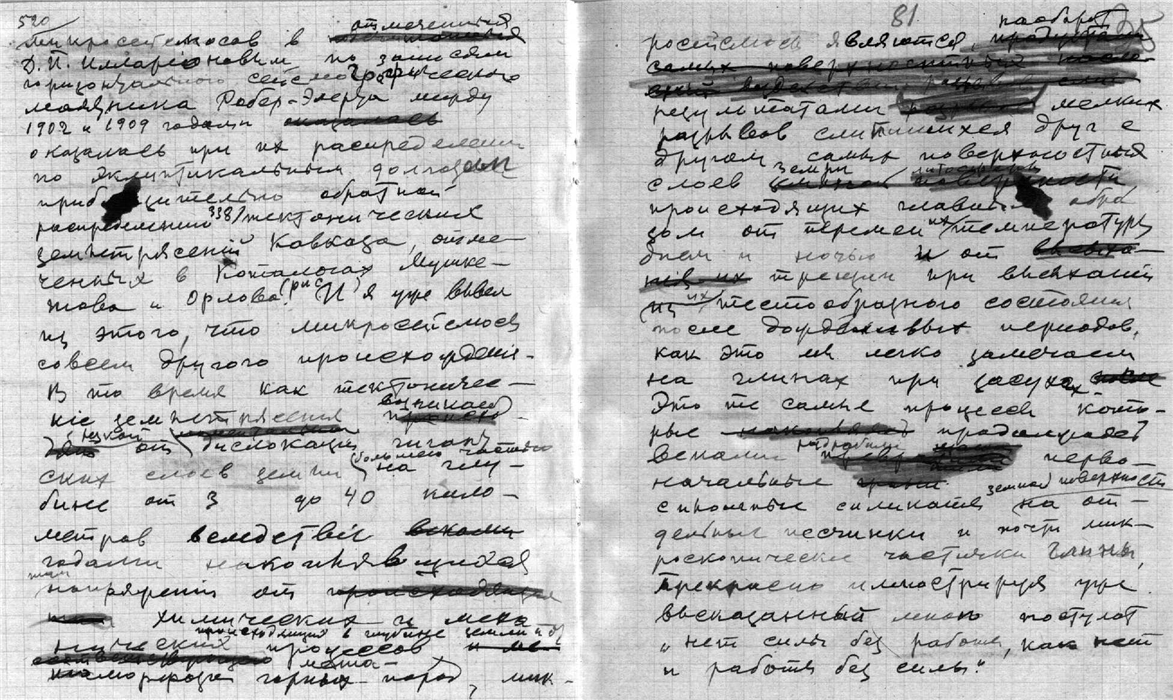 520
отмеченныя
микросейсмосов в
Д. И. Илларионовым по записям
горизонтального сейсмографическаго
маятника Робер-Элерта между
1902 и 1909 годами оказалась
оказалась при их распределении
по эклиптикальным долготам
приблизительно обратной
распределению 338/ тектонических
землетрясений Кавказа, отме-
ченных в Каталогах Мушке-
това и Орлова (рис. ). И я уже вывел
из этого, что микросейсмосы
совсем другого происхождения.
В то время как тектоничес-
кие землетрясения возникают
от дислокации гигант-
ских слоев земли (большею частью
на глу-
бине от 3 до 40 кило-
метров вследствие веками
годами накопляющихся
напряжений от
химических и меха-
происходящих в глубине земли
нических процессов
мета-
морфоза горных пород, мик-
81
наоборот
росейсмосы являются,
самых поверхностных
результатами мелких
разрывов слипшихся друг с
другом самых поверхностных
слоев земли
происходящих главным обра
зом от перемен их температуры
днем и ночью и от
их трещин при высыхании
из их тестообразного состояния
после дождливых периодов,
как это мы легко замечаем
на глинах при засухах.
Это те самые процессы кото-
рые продолжает
веками перво-
начальные
земной поверхности
сплошные силикаты на от-
дельные песчинки и почти мик-
роскопические частички глины,
прекрасно иллюстрируя уже
высказанный мною постулат
"нет силы без работы, как нет
и работы без силы."